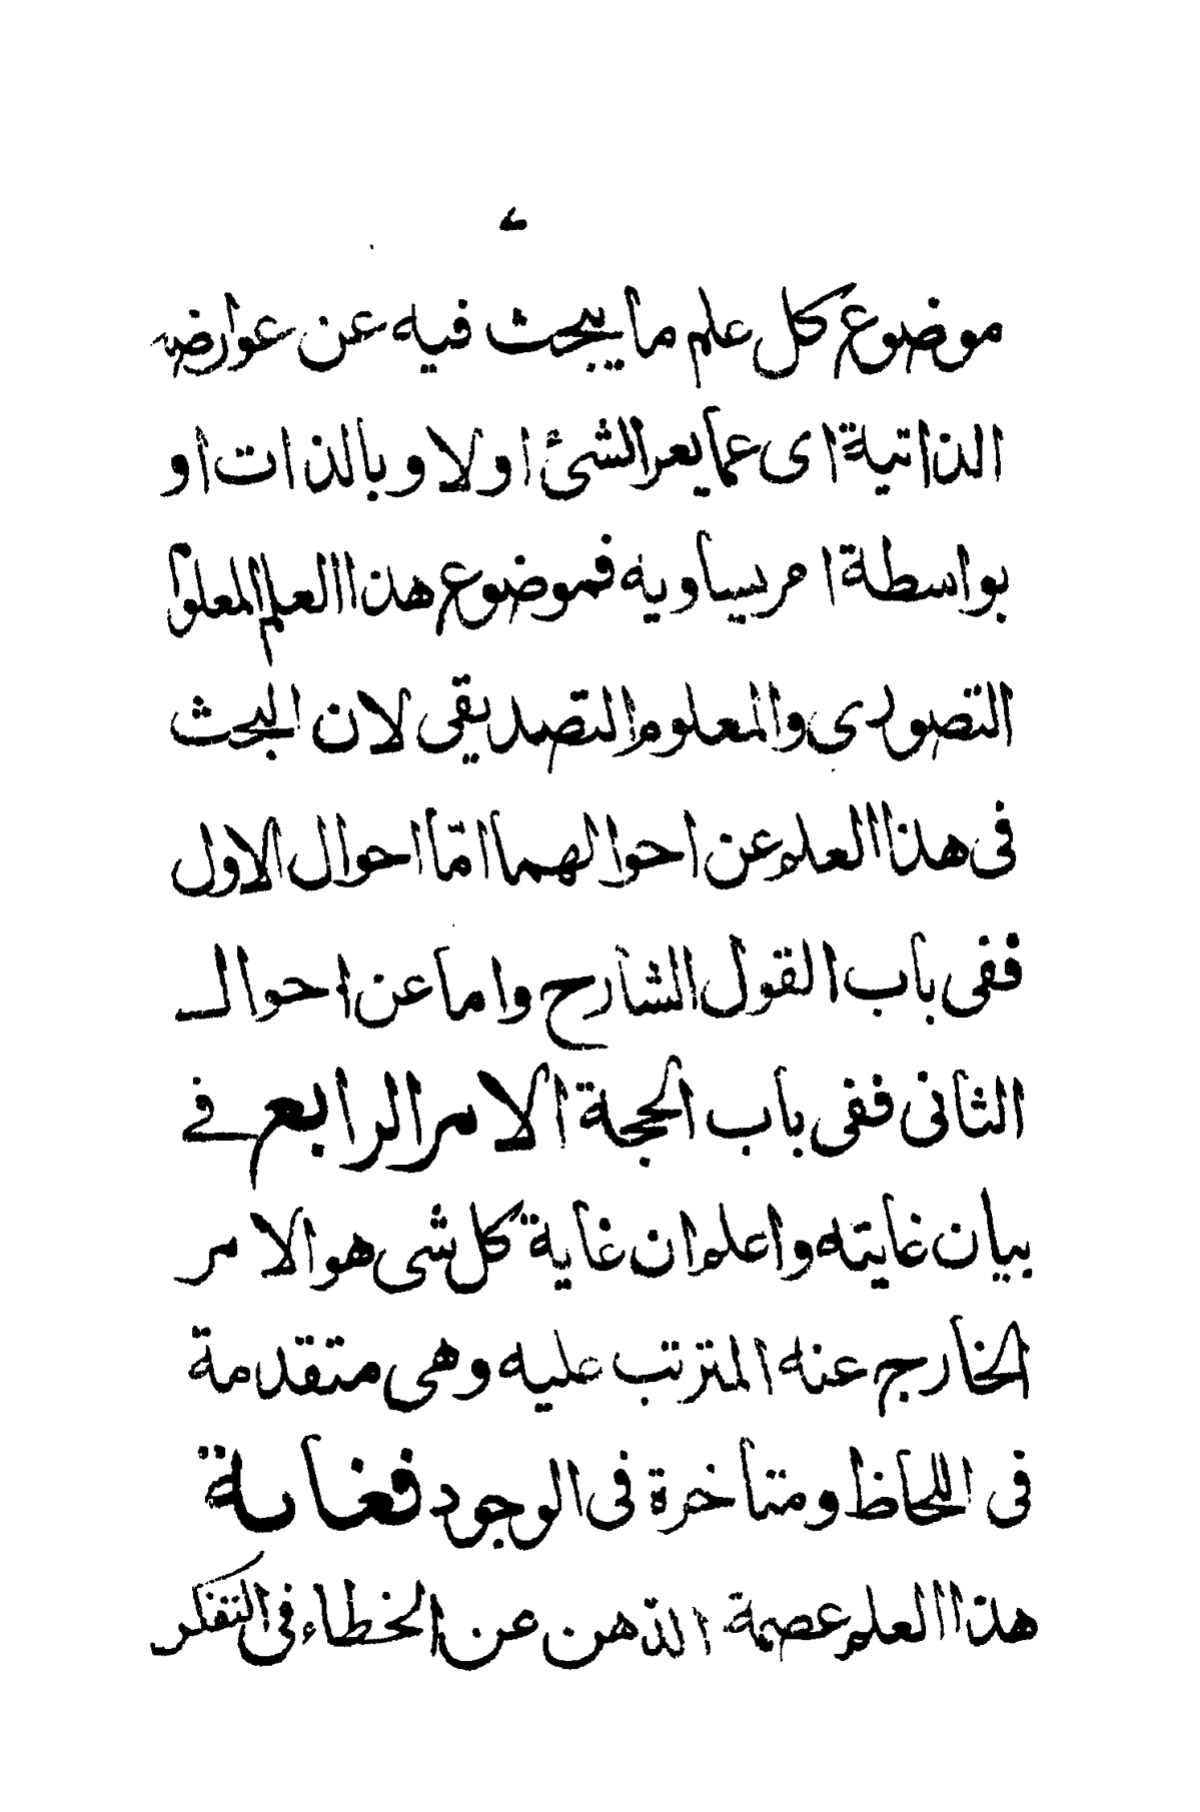 موضوع كل علم ما يبحث فيه عن عوارضه
الذاتية اى عما يعرالشئ اولا وبالذات او
بواسطة امر يساويه فموضوع هذا العلم المعلوم
التصورى والمعلوم التصديقى لان البحث
فى هذا العلم عن احوالهما امّا احوال الاول
ففى باب القول الشارح واما عن احوال
الثانى ففى باب الحجة الامر الرابع فى
بيان غايته واعلم ان غاية كل شى هو الامر
الخارج عنه المترتب عليه وهى متقدمة
فى اللحاظ ومتأخرة فى الوجود فغاية
هذا العلم عصمة الذهن عن الخطاء فى التفكر